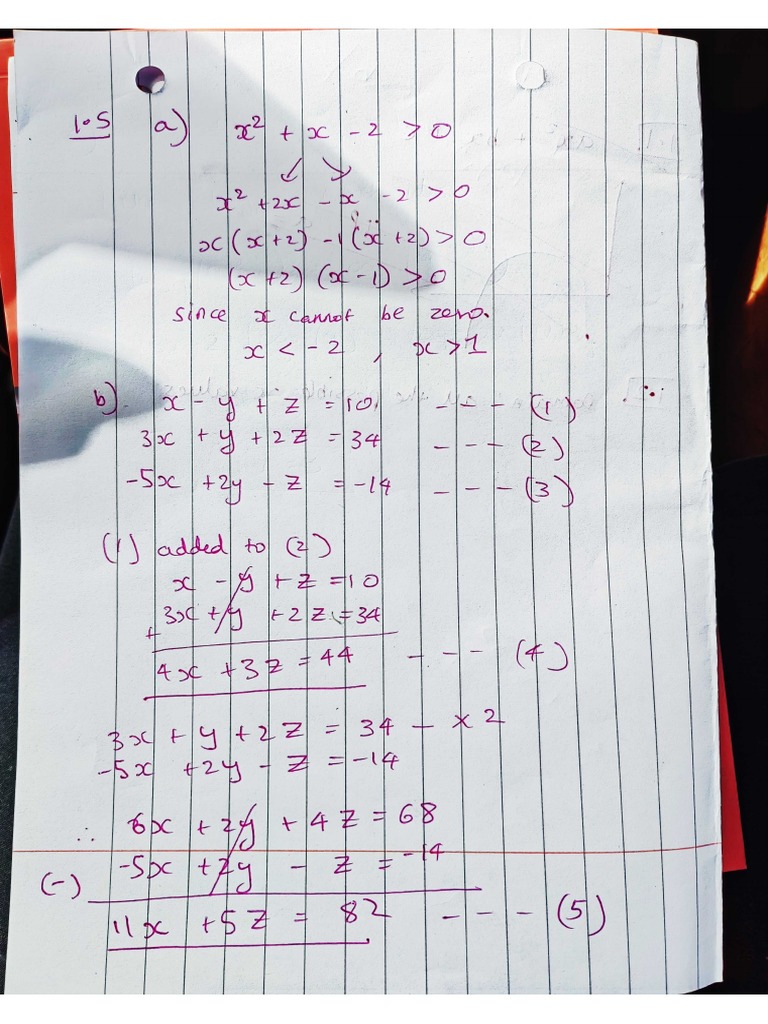 1.5 a) x² + x - 2 > 0
x² + 2x - x - 2 > 0
x(x+2) - 1(x+2) > 0
(x+2)(x-1) > 0
since x cannot be zero.
x < -2 , x > 1
b). x - y + z = 10 - - - (1)
3x + y + 2z = 34 - - - (2)
-5x + 2y - z = -14 - - - (3)
(1) added to (2)
x - y + z = 10
+ 3x + y + 2z = 34
4x + 3z = 44 - - - (4)
3x + y + 2z = 34 - x 2
-5x + 2y - z = -14
∴ 6x + 2y + 4z = 68
(-) -5x + 2y - z = -14
11x + 5z = 82 - - - (5)